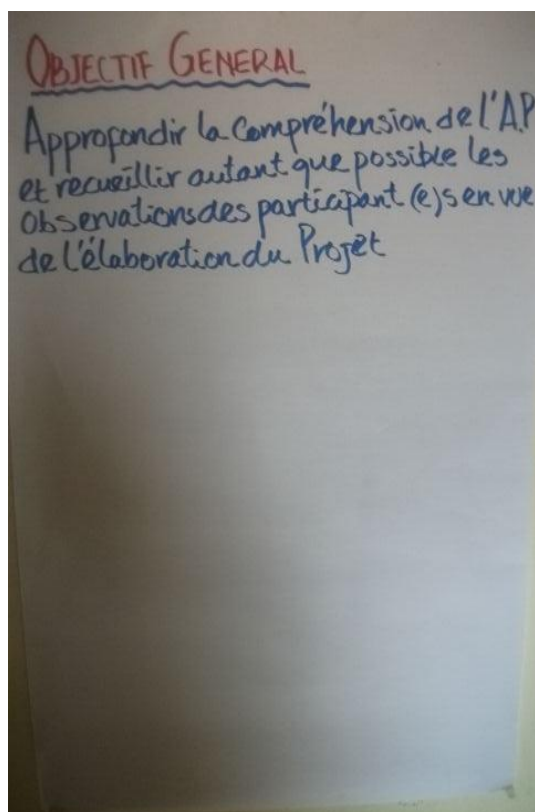 OBJECTIF GENERAL
Approfondir la Compréhension de l'A.P
et recueillir autant que possible les
observations des participant(e)s en vue
de l'élaboration du Projet